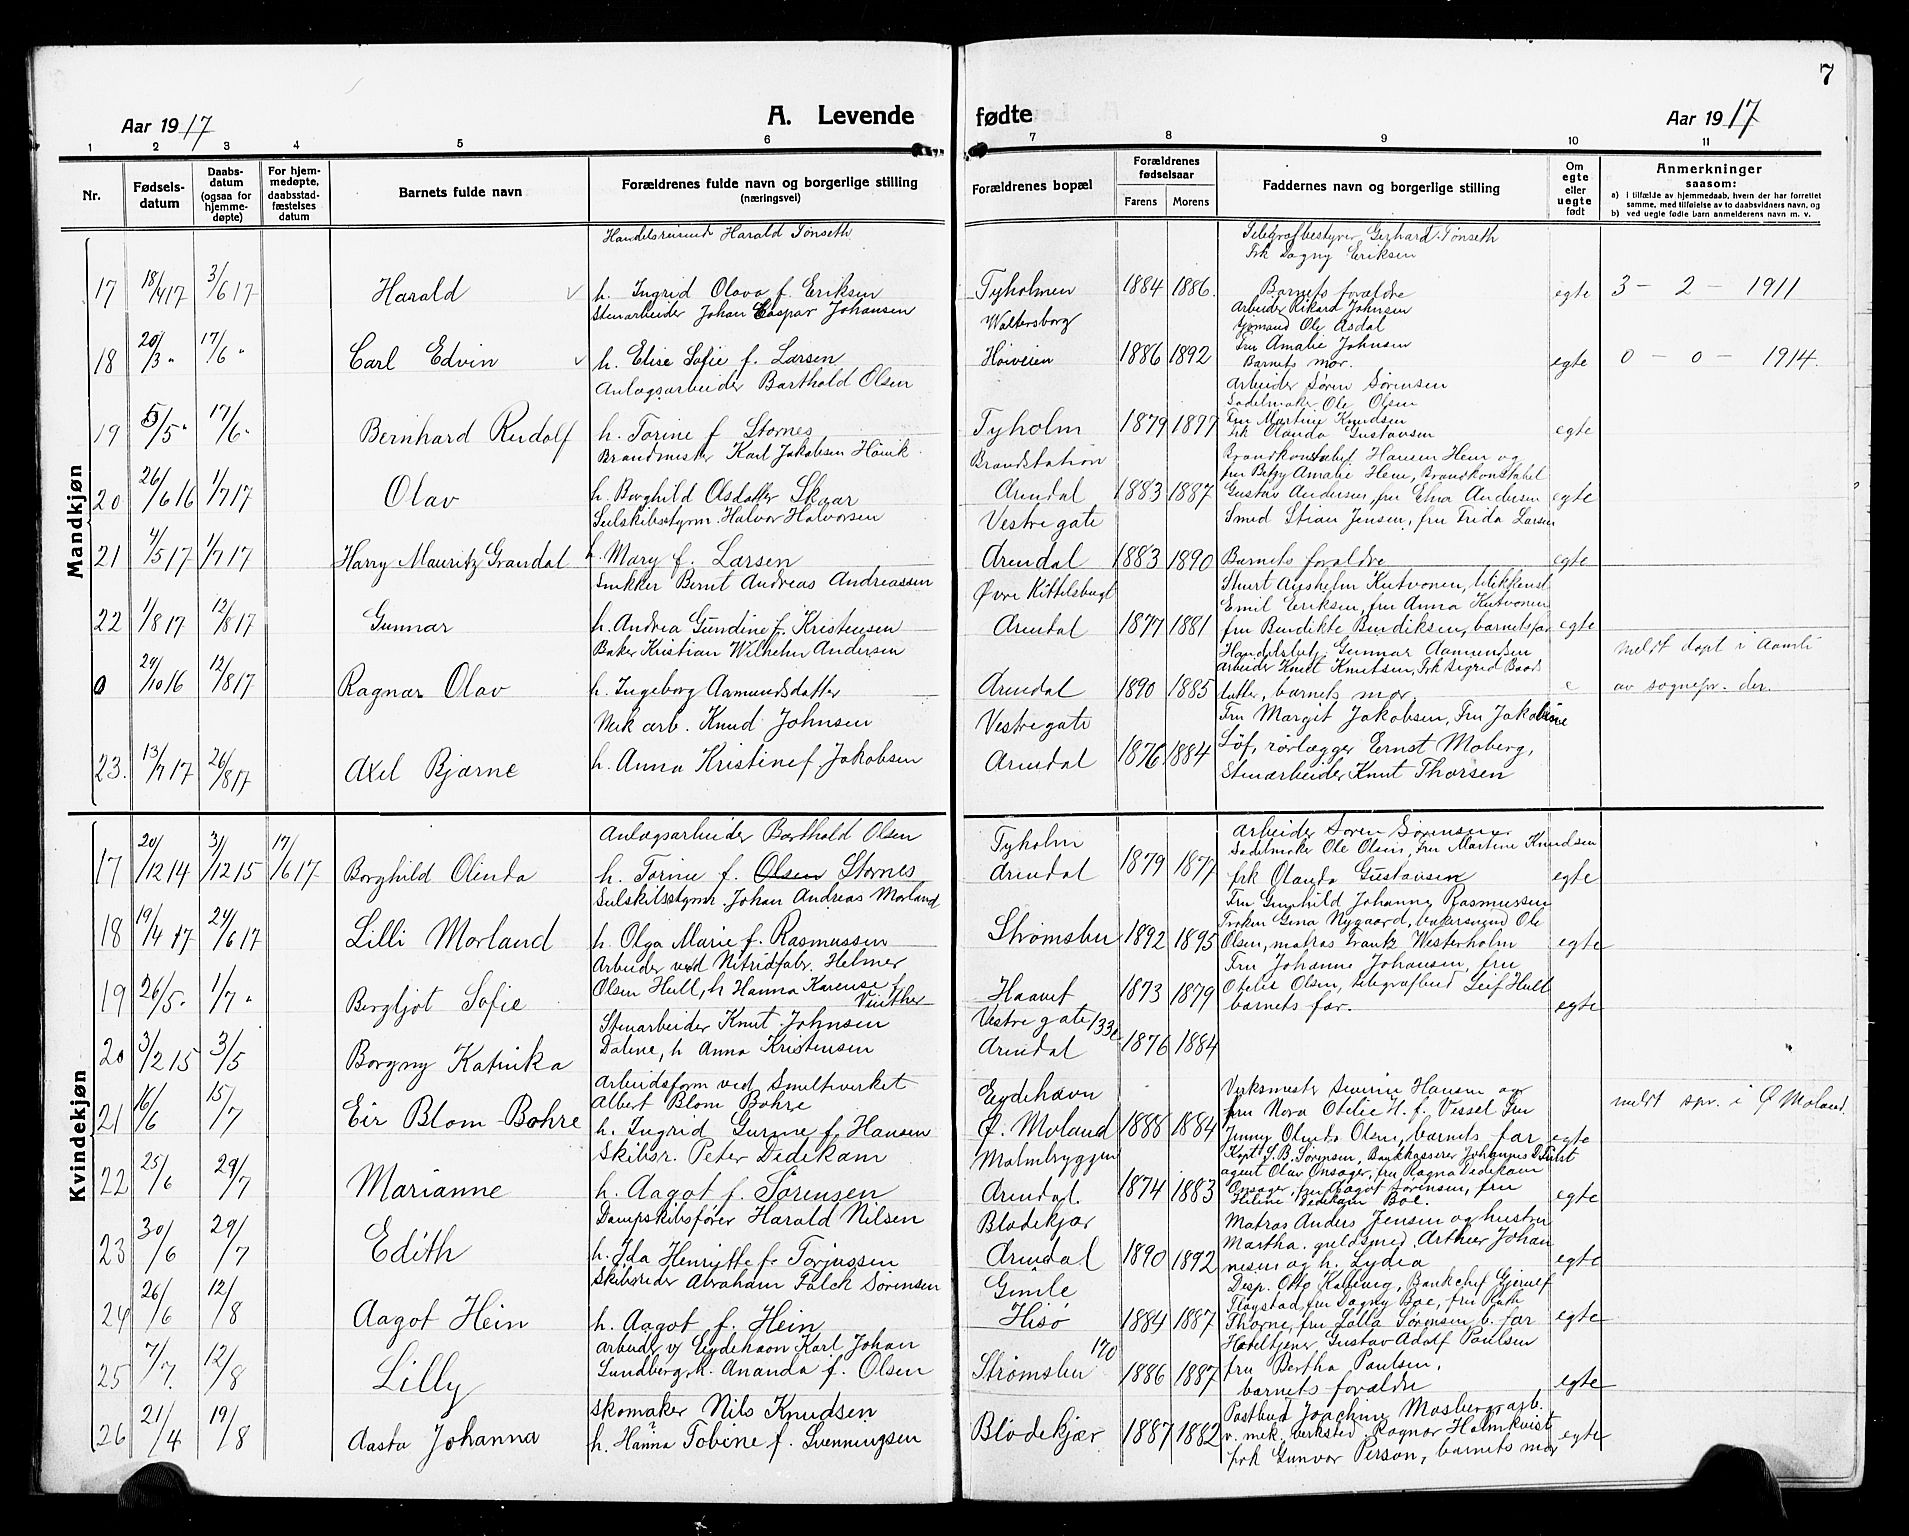 7
Aar 1917
A. Levende
fødte
Aar 1917
1 2 3 4 5 6 7 8 9 10 11
Nr.
Fødsels-
datum
Daabs-
datum
(ogsaa for
hjemme-
døpte)
For hjem-
medøpte,
daabsstad-
fæstelses
datum
Barnets fulde navn
Forældrenes fulde navn og borgerlige stilling
(næringsvei)
Forældrenes bopæl
Forældrenes
fødselsaar
Farens Morens
Faddernes navn og borgerlige stilling
Om
egte
eller
uegte
født
Anmerkninger
saasom:
a) i tilfælde av hjemmedaab, hvem der har forrettet
samme, med tilføielse av to daabsvidners navn, og
b) ved uegte fødte barn anmelderens navn m. v.
Mandkjøn
Handelsreisend Harald Tønseth
Telegrafbestyrer Gerhard Tønseth
Frk Dagny Eriksen
17 18/4 17 3/6 17 Harald h. Ingrid Olava f. Eriksen Tyholmen 1884 1886. Barnets forældre egte 3 - 2 - 1911
Stenarbeider Johan Caspar Johansen Waltersborg Arbeider Rikard Johnsen
Sjømand Ole Asdal
Fru Amalie Johnsen
18 20/3 " 17/6 " Carl Edvin h. Elise Sofie f. Larsen Høiveien 1886 1892 Barnets mor. egte 0 - 0 - 1914.
Anlægsarbeider Barthold Olsen Arbeider Søren Sørensen
Sadelmaker Ole Olsen
19 5/5 " 17/6 " Bernhard Rudolf h. Torine f. Stornes Tyholm 1879 1877 Fru Martine Knudsen
Frk Olanda Gustavsen egte
Brandmester Karl Jakobsen Høivik Brandstation Brandkonstabel Hansen Hem og
fru Betzy Amalie Hem, Brandkonstabel
20 26/6 16 1/7 17 Olav h. Borghild Olsdatter Skaar Arendal 1883 1887 Gustav Andersen, fru Elna Andersen egte
Seilskibsstyrm. Halvor Halvorsen Vestre gate Smed Stian Jensen, fru Frida Larsen
21 4/5 17 1/7 17 Harry Mauritz Grandal h. Mary f. Larsen Arendal 1883 1890 Barnets forældre egte
Snikker Bernt Andreas Andreassen Øvre Kittelsbugt
Emil Eriksen, fru Anna Kutvonen
22 1/8 17 12/8 17 Gunnar h. Andrea Gundine f. Kristensen Arendal 1877 1881 fru Bendikte Bendiksen, barnets far egte
Baker Kristian Wilhelm Andersen Handelsbetj. Gunnar Aamundsen meldt døpt i Aamli
arbeider Knut Knutsen, Frk Sigrid Baas
0 29/10 16 12/8 17 Ragnar Olav h. Ingeborg Aamundsdatter Arendal 1890 1885 datter, barnets mor. e av sognepr. der.
Mek arb. Knud Johnsen Vestregate Fru Margit Jakobsen, Fru Jakobine
23. 13/7 17 26/8 17 Axel Bjarne h. Anna Kristine f. Jakobsen Arendal 1876 1884 Løf, rørlægger Ernst Moberg,
Stenarbeider Knut Thorsen
Kvindekjøn
Anlægsarbeider Barthold Olsen Tyholm Arbeider Søren Sørensen
Sadelmaker Ole Olsen, Fru Martine Knudsen
17 20/12 14 31/12 15 17/6 17 Borghild Olinda h. Torine f. Olsen Stornes Arendal 1879 1877 frk Olanda Gustavsen egte
Seilskibsstyrm. Johan Andreas Morland Fru Gunhild Johanne Rasmussen
Frøken Gina Nygaard, bakersvend Ole
18 19/4 17 24/6 17 Lilli Morland h. Olga Marie f. Rasmussen Strømsbu 1892 1895 Olsen, matros Frantz Westerholm egte
Arbeider ved Nitridfabr. Helmer Fru Johanne Johansen, fru
19 26/5 " 1/7 " Bergljot Sofie Olsen Hull, h Hanna Karense f.
Vinther Haavet 1873 1879 Otelie Olsen, telegrafbud Leif Hull
barnets far. egte
Stenarbeider Knut Johnsen Vestre gate 33e
20 3/2 15 3/5 Borgny Katinka Dalene, h Anna Kristensen Arendal 1876 1884
Arbeidsform ved Smelteverket Eydehavn Verksmester Severin Hansen og
Albert Blom Bøhre fru Nora Otelie H. f. Vessel Fru meldt spr. i Ø Moland.
21 16/6 15/7 Eir Blom-Bøhre h. Ingrid Gurine f. Hansen Ø. Moland 1888 1884 Jenny Olinda Olsen, barnets far egte
Skibsr. Peter Dedekam Malmbryggen Kapt S. B. Sørensen, Bankkasserer Johannes
agent Olav Onsager, fru Ragna Dedekam
22 25/6 29/7 Marianne h. Aagot f. Sørensen Arendal. 1874 1883 Onsager, fru Aagot Sørensen, fru
Helene Dedekam Boe. egte
Dampskibsfører Harald Nilsen Blødekjær Matros Anders Jensen og hustru
Martha. guldsmed Arthur Johan
23 30/6 29/7 Edith h. Ida Henriette f. Torjussen Arendal 1890 1892 nesen og h. Lydia egte
Skibsreder Abraham Falck Sørensen Gimle Desp. Otto Kallevig, Bankchef Gjeruef
Fløystad, fru Dagny Boe, fru Ruth
24 26/6 12/8 Aagot Hein h. Aagot f. Hein Hisø 1884 1887 Thorne, fru Lalla Sørensen b. far egte
arbeider v/ Eydehavn Karl Johan 170 Hoteltjener Gustav Adolf Paulsen
25 7/7. 12/8 Lilly Lundberg, h. Ananda f. Olsen Strømsbu 1886 1887 fru Bertha Paulsen,
barnets forældre egte
Skomaker Nils Knudsen Postbud Joachine Mosberg, arb.
26 21/4 19/8 Aasta Johanna h. Hanna Tobine f. Svenningsen Blødekjær 1887 1882 v. mek. verksted Ragnar Holmkvist
frk Gunvor Person, barnets mor egte